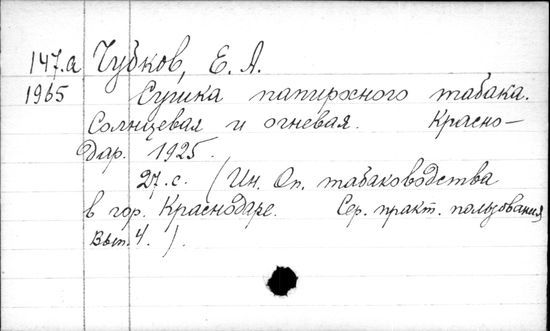 147.а Чубков, Е. А.
1965 Сушка папиросного табака.
Солнцевая и огневая. Красно-
дар. 1925.
27, с. (Ин. Оп. табаководства
в гор. Краснодаре. Сер. практ. пользования
Вып. 4. ).